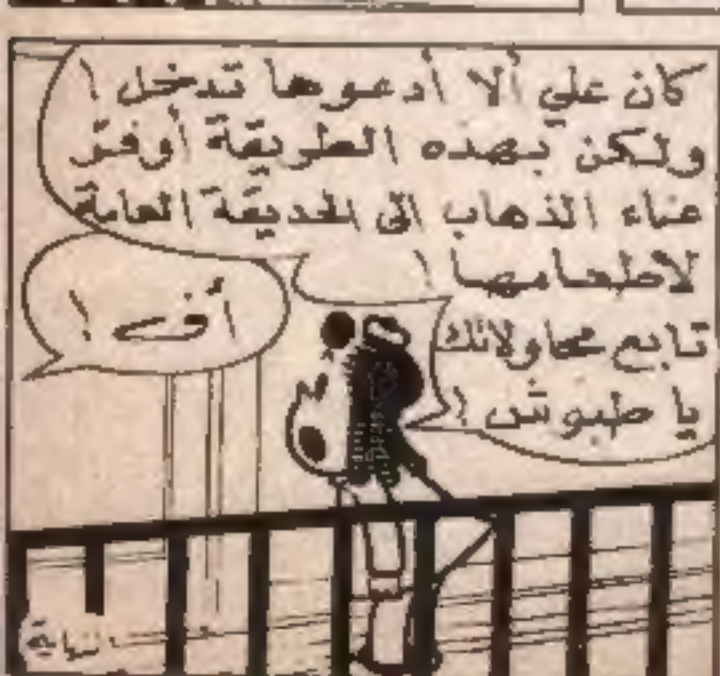 كان علي ألا أدعوها تدخل !
ولكن بهذه الطريقة أوفر
عناء الذهاب الى الحديقة العامة
لاطعامها !
تابع محاولاتك
يا طبوش !
أف !
النهاية